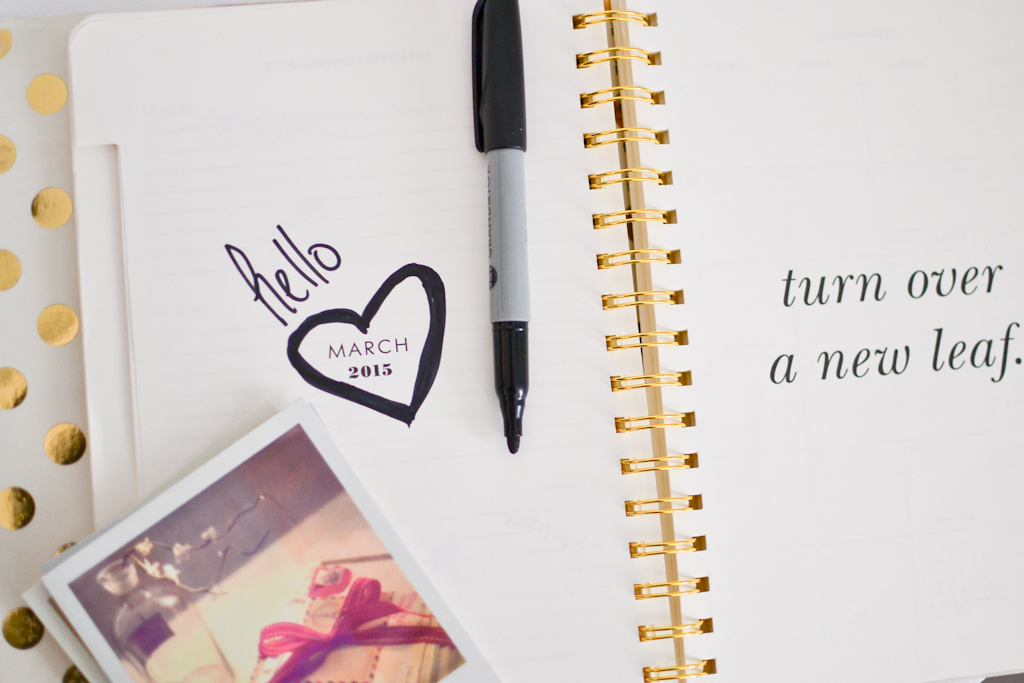 hello
MARCH
2015
turn over
a new leaf.